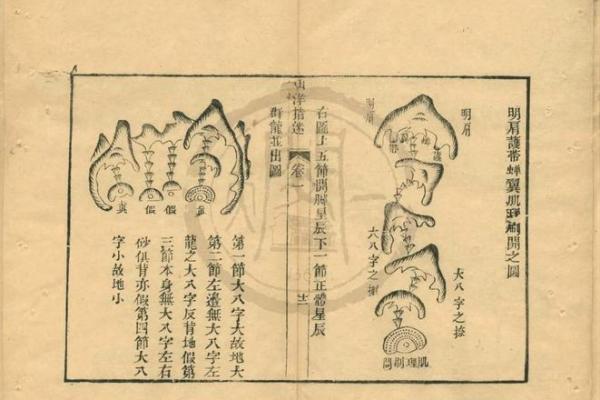 明肩護帶蟬翼肌理刷開之圖
明肩
明肩
護
帶
大八字之撇
大八字之捺
肌理刷開
右圖上五節開脚星辰下一節正體星辰
山洋指迷
卷一
十二
群龍並出圖
真
假
假
真
第一節大八字大故地大
第二節左邊無大八字左
龍之大八字反背地假第
三節本身無大八字左右
砂俱背亦假第四節大八
字小故地小